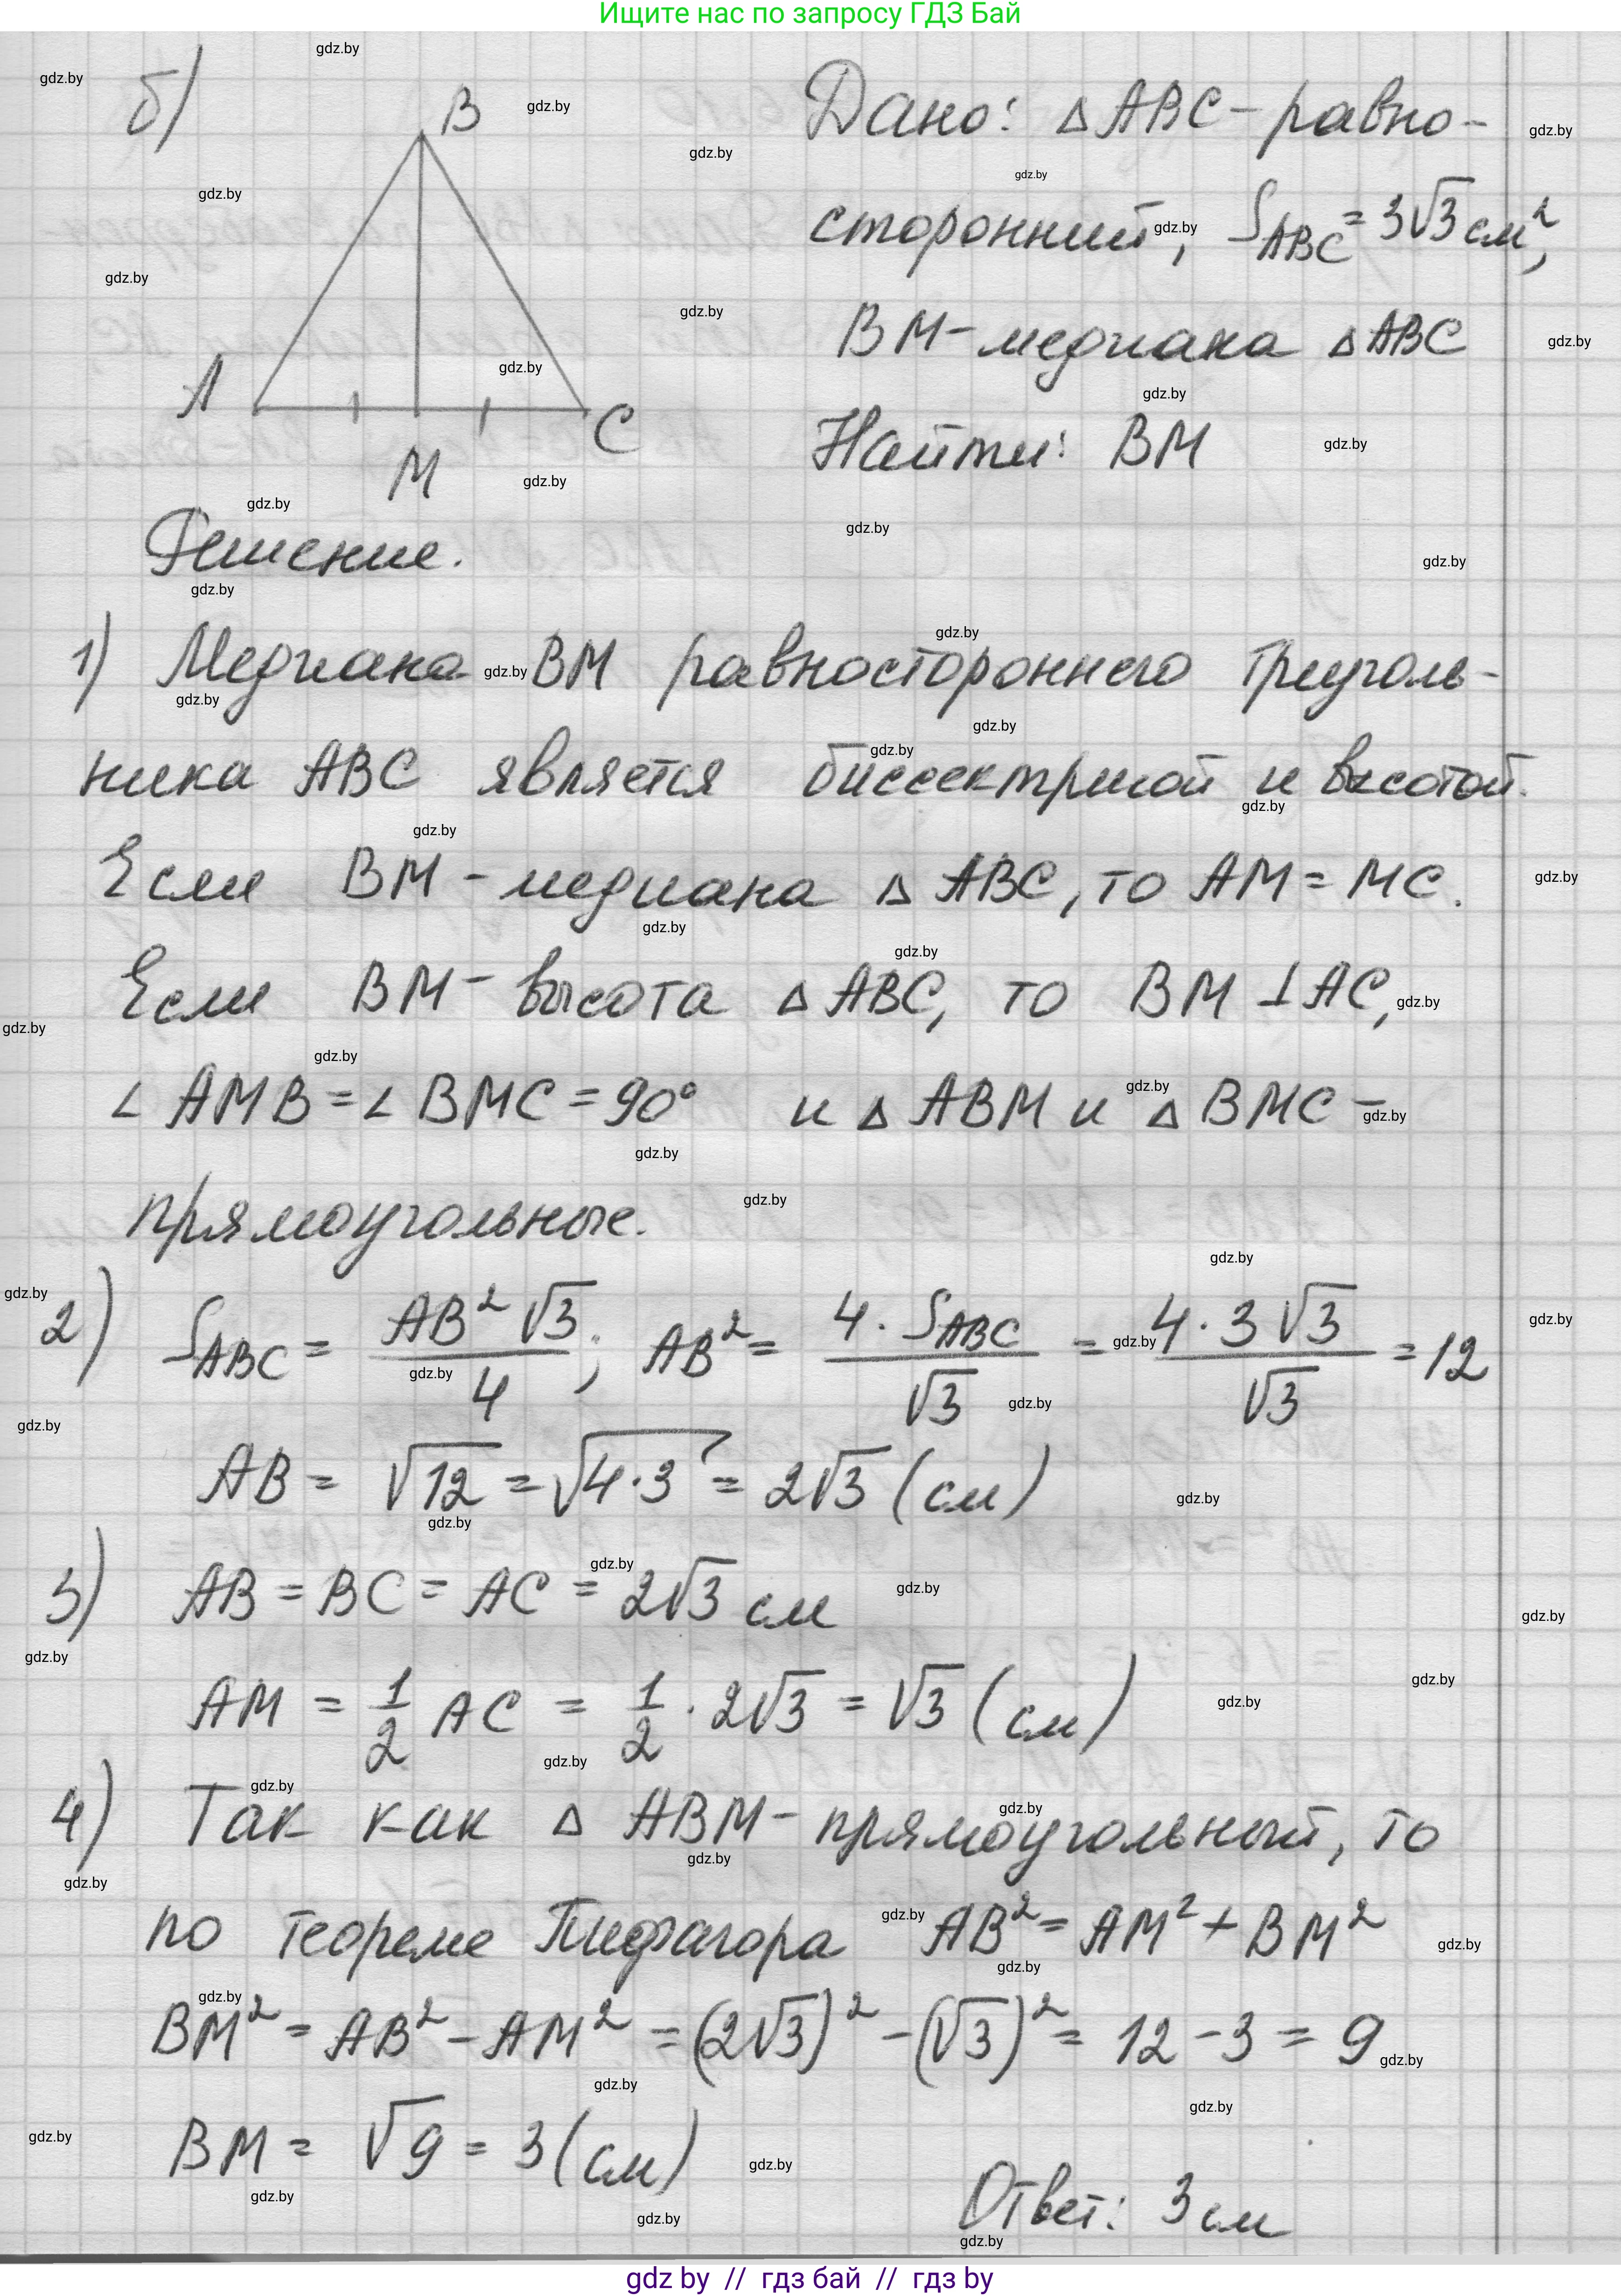 Ищите нас по запросу ГДЗ Бай
б)
B
A
C
M
Дано: △ABC - равно-
сторонний, S_ABC = 3√3 см²,
BM - медиана △ABC
Найти: BM
Решение.
1) Медиана BM равностороннего треуголь-
ника ABC является биссектрисой и высотой.
Если BM - медиана △ABC, то AM = MC.
Если BM - высота △ABC, то BM ⊥ AC,
∠AMB = ∠BMC = 90° и △ABM и △BMC -
прямоугольные.
2) S_ABC = AB²√3/4; AB² = 4·S_ABC/√3 = 4·3√3/√3 = 12
AB = √12 = √4·3 = 2√3 (см)
3) AB = BC = AC = 2√3 см
AM = 1/2 AC = 1/2 · 2√3 = √3 (см)
4) Так как △ABM - прямоугольный, то
по теореме Пифагора AB² = AM² + BM²
BM² = AB² - AM² = (2√3)² - (√3)² = 12 - 3 = 9
BM = √9 = 3 (см)
Ответ: 3 см
gdz by // гдз бай // гдз by